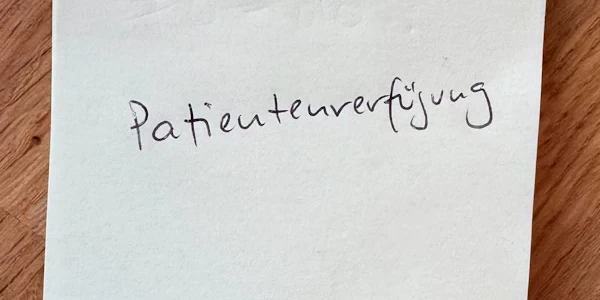 Patientenverfügung